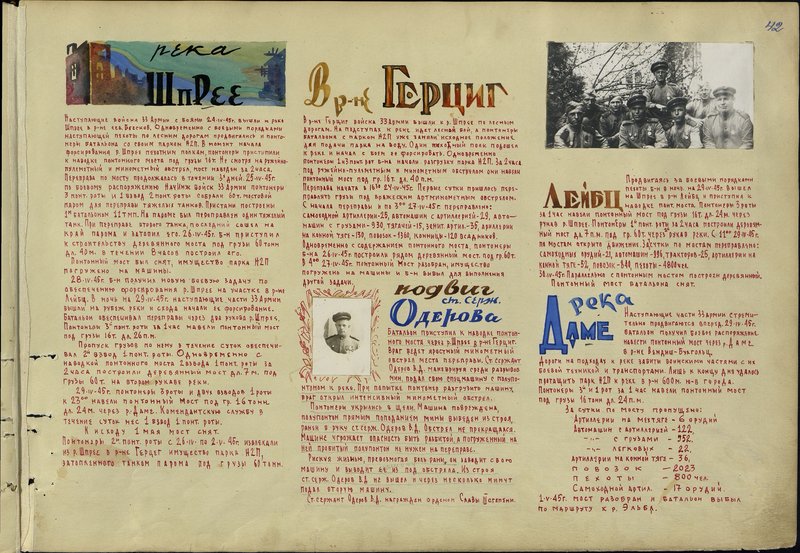 42
река
Шпрее
Наступающие войска 33 Армии с боями 24-IV-45г. вышли к реке
Шпрее в р-не сев. Бресков. Одновременно с боевыми порядками
наступающей пехоты по лесным дорогам продвигались и понто-
неры батальона со своим парком Н2П. В момент начала
форсирования р. Шпрее пехотным полкам, понтонеры приступили
к наводке понтонного моста под грузы 16т. Не смотря на ружейно-
пулеметный и минометный обстрел, мост наведен за 2 часа.
Переправа по мосту продолжалась в течении 3х дней. 25-IV-45г.
по боевому распоряжению Нач Инж Войск 33 Армии понтонеры
3й понт. роты и 1 взвод 2й понт. роты собрали 60т. мостовой
паром для переправы тяжелых танков. Пристани построены
1м батальоном 11 тмп. На пароме был переправлен один тяжелый
танк. При переправе второго танка, последний сошел на
край парома и затопил его. 26-IV-45г. б-н приступил
к строительству деревянного моста под грузы 60 тонн
дл. 40м. в течении 8 часов построил его.
Понтонный мост был снят, имущество парка Н2П
погружено на машины.
28-IV-45г. б-н получил новую боевую задачу по
обеспечению форсирования р. Шпрее на участке в р-не
Лейбц. В ночь на 29-IV-45г. наступающие части 33 Армии
вышли на рубеж реки и с хода начали ее форсирование.
Батальон обеспечивал переправы через два рукова р. Шпрее.
Понтонеры 3й понт. роты за 1 час навели понтонный мост
под грузы 16т. дл. 26 п.м.
Пропуск грузов по нему в течение суток обеспечи-
вал 2й взвод 1 понт. роты. Одновременно с
наводкой понтонного моста 2 взвода 1 понт. роты за
2 часа построили деревянный мост дл. 7м. под
грузы 60т. на втором рукаве реки.
29-IV-45г. понтонеры 3 роты и двух взводов 1 роты
к 23 00 навели понтонный мост под гр. 16 тонн,
дл. 24м. через р. Даме. Комендантскую службу в
течение суток нес 1 взвод 1 понт. роты.
К исходу 1 мая мост снят.
Понтонеры 2й понт. роты с 26-IV по 2-V-45г извлекали
из р. Шпрее в р-не Герцег имущество парка Н2П,
затопленного танком парома под грузы 60 тонн.
В р-не Герциг
В р-не Герциг войска 33 Армии вышли к р. Шпрее по лесным
дорогам. На подступах к реке, идет лесной бой, а понтонеры
батальона с парком Н2П уже заняли исходное положение
для подачи парка на воду. Один пехотный полк подошел
к реке и начал с боем ее форсировать. Одновременно
понтонеры 1 и 3 понт. рот б-на начали разгрузку парка Н2П. За 2 часа
под ружейно-пулеметным и минометным обстрелом они навели
понтонный мост под гр. 16т. дл. 40 п.м.
Переправа начата в 16 00 24-IV-45г. Первые сутки пришлось пере-
правлять грузы под вражеским артминометным обстрелом.
С начала переправы и по 3 00 27-IV-45г. переправлено:
самоходной артиллерии-25, автомашин с артиллерией-29, авто-
машин с грузами-930, тягачей-15, зенит. артил.-35, артиллерии
на конной тяге-130, повозок-1380, конницы-120 всадников.
Одновременно с содержанием понтонного моста, понтонеры
б-на 26-IV-45г. построили рядом деревянный мост под гр. 60т.
В 4 00 27-IV-45г. понтонный мост разобран, имущество
погружено на машины и б-н выбыл для выполнения
другой задачи.
подвиг
ст. серж.
Одерова
Батальон приступил к наводке понтон-
ного моста через р. Шпрее в р-не Герциг.
Враг ведет яростный минометный
обстрел места переправы. Ст. сержант
Одеров В.Д. маневрируя среди разрывов
мин, подал свою спецмашину с полупон-
тоном к реке. При попытке понтонер разгрузить машину,
враг открыл интенсивный минометный обстрел.
Понтонеры укрылись в щели. Машина повреждена,
полупонтон прямым попаданием мины выведен из строя,
ранен в руку ст. серж. Одеров В.Д. Обстрел не прекращался.
Машине угрожает опасность быть разбитой, а погруженный на
ней пробитый полупонтон не нужен на переправе.
Рискуя жизнью, превозмогая боль раны, он заводит свою
машину и выводит ее из под обстрела. Из строя
ст. серж. Одеров В.Д. не вышел и через несколько минут
подал вторую машину.
Ст. сержант Одеров В.Д. награжден орденом Славы III степени.
Лейбц
Продвигаясь за боевыми порядками
пехоты б-н в ночь на 29-IV-45г вышел
на Шпрее в р-н Лейбц и приступил к
наводке понт. моста. Понтонеры 3 роты
за 1 час навели понтонный мост под грузы 16т. дл. 24м. через
рукав р. Шпрее. Понтонеры 1й понт. роты за 2 часа построили деревян-
ный мост дл. 7 п.м. под гр. 60т через рукав реки. С 11 00 29-IV-45г.
по мостам открыто движение. За сутки по мостам переправлено:
самоходных орудий-21, автомашин-996, тракторов-25, артиллерии на
конной тяге-92, повозок-840, пехоты-4800 чел.
30-IV-45г. Параллельно с понтонным мостом построен деревянный.
Понтонный мост батальона снят.
река
Даме
Наступающие части 33 Армии стреми-
тельно продвигаются вперед. 29-IV-45г.
батальон получил боевое распоряжение
навести понтонный мост через р. Даме
в р-не Вендиш-Бухгольц.
Дороги на подходах к реке забиты воинскими частями с их
боевой техникой и транспортами. Лишь к концу дня удалось
протащить парк Н2П к реке в р-н 600м. ю-в города.
Понтонеры 3й и 1 рот за 1 час навели понтонный мост
под грузы 16 тонн дл. 24 п.м.
За сутки по мосту пропущено:
Артиллерии на мехтяге - 6 орудий
Автомашин с артиллерией - 122,
-"- с грузами - 952,
-"- легковых - 22,
Артиллерии на конной тяге - 36,
повозок - 2023
пехоты - 800 чел.
Самоходной артил. - 17 орудий.
1-V-45г. мост разобран и батальон выбыл
по маршруту к р. Эльба.